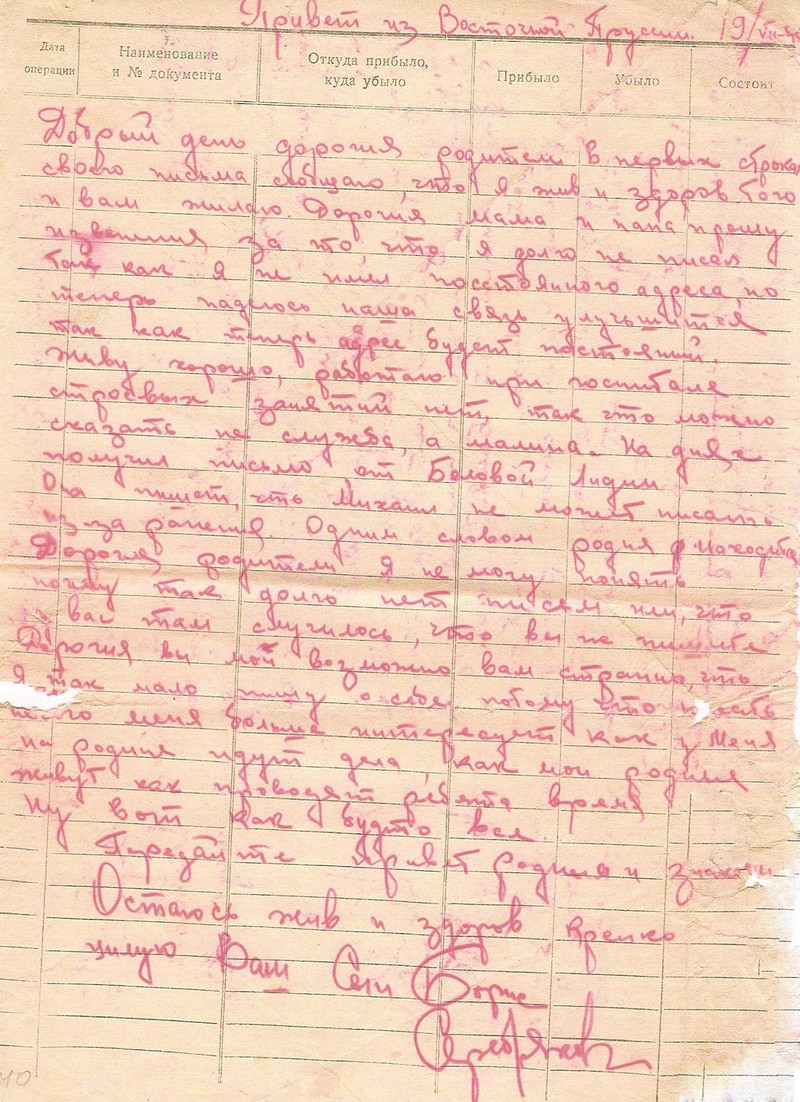 Привет из Восточной Пруссии. 19/VII-45
Дата операции
Наименование и № документа
Откуда прибыло, куда убыло
Прибыло
Убыло
Состоит
Добрый день дорогия родители в первых строках
своего письма сообщаю, что я жив и здоров того
и вам жилаю. Дорогия мама и папа прошу
извенния за то, что я долго не писал
так как я не имел посстоянного адреса, но
теперь надеюсь наша связь улучшится
так как теперь адрес будет постояний.
Живу хорошо, работаю при госпитале
строевых занятий нет, так что можно
сказать не служба, а малина. На днях
получил письмо от Беловой Лидии
Она пишет, что Михаил не может писать
из за ранения. Одним словом родня
Дорогия родители я не могу понять
почему так долго нет писем или, что
у вас там случилось, что вы не пишите
Дорогия вы мои возможно вам странно, что
я так мало пишу о себе потому что
меня больше интересует как у меня
на родине идут дела, как мои родные
живут как проводят ребята время
ну вот как будто все.
Передайте привет родным и знакомым
Остаюсь жив и здоров крепко
цилую Ваш Сын Борис